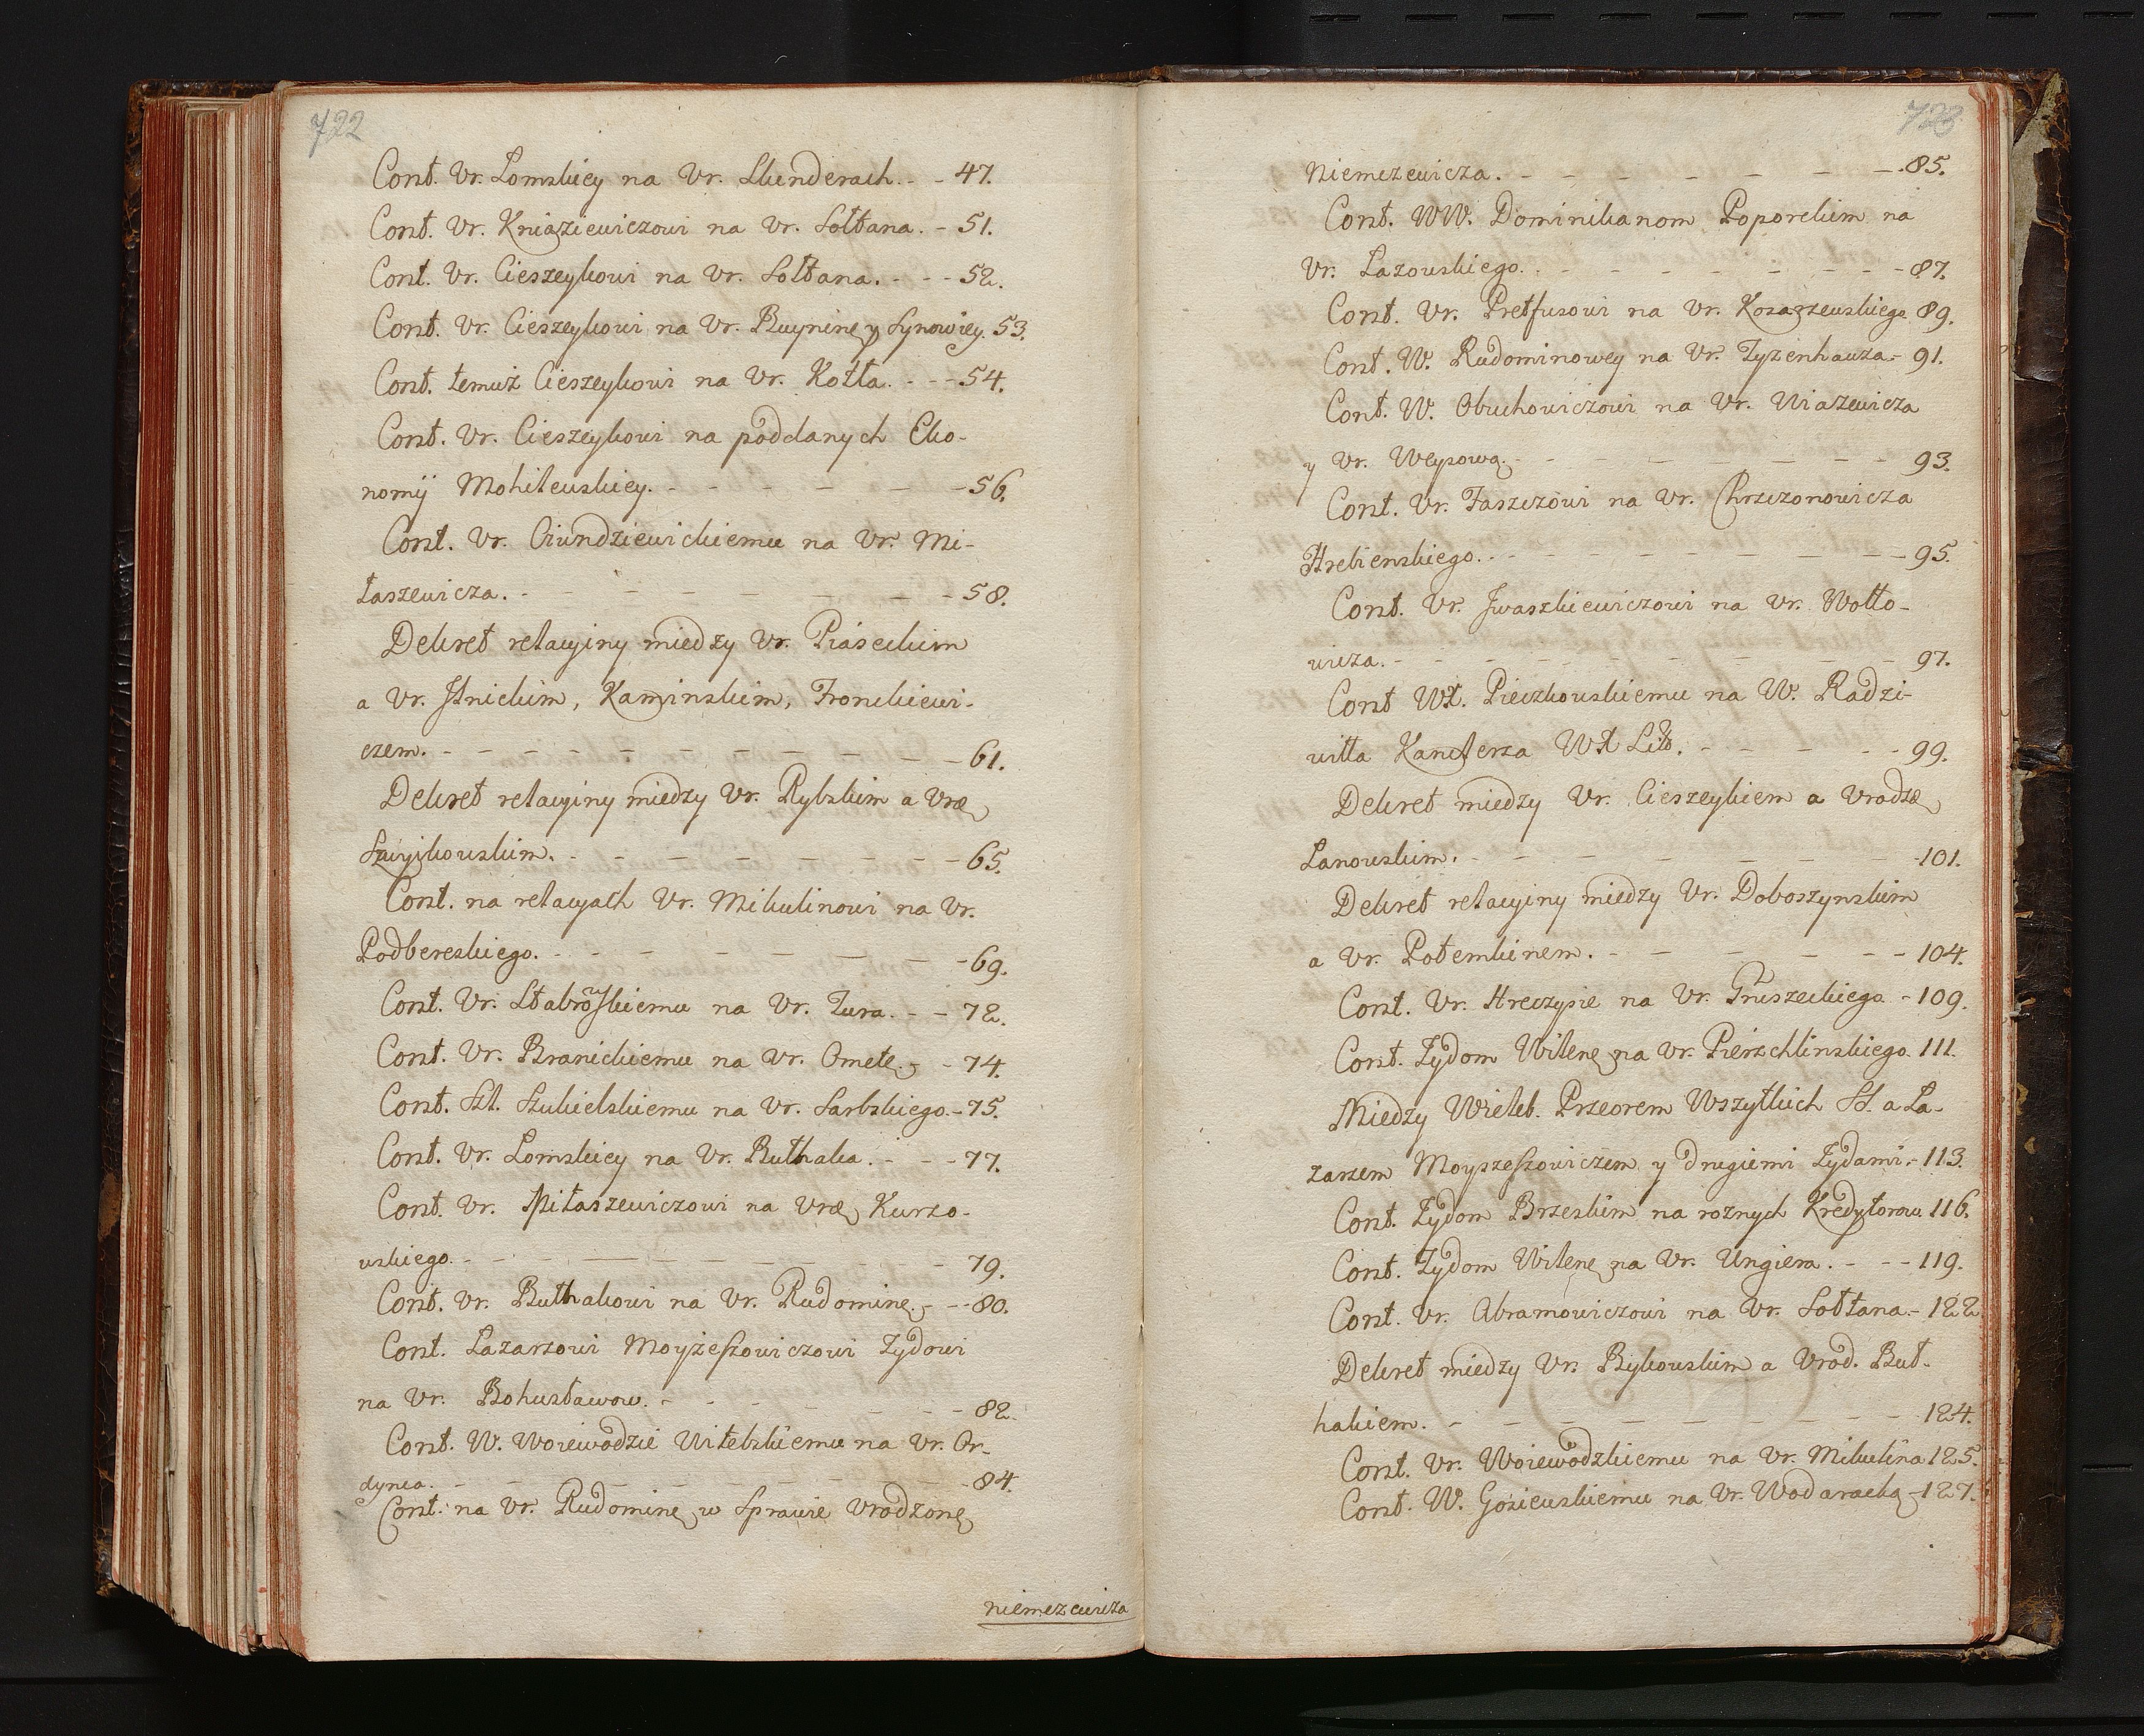 722
Cont. Vr. Lomskiey na Vr. Skunderach. - - 47.
Cont. Vr. Kniaziewiczowi na Vr. Sołtana. - 51.
Cont. Vr. Cieszeykowi na Vr. Sołtana. - - - 52.
Cont. Vr. Cieszeykowi na Vr. Buyninę y Synowiey. 53.
Cont. temuż Cieszeykowi na Vr. Kotła. - - - 54.
Cont. Vr. Cieszeykowi na poddanych Eko-
nomij Mohilewskiey. - - - - - - 56.
Cont. Vr. Giundziewickiemu na Vr. Mi-
łaszewicza. - - - - - - - - 58.
Dekret relacyiny miedzy Vr. Piaseckim
a Vr. Iłnickim, Kaminskim, Fronckiewi-
czem. - - - - - - - - - 61.
Dekret relacyiny miedzy Vr. Rybskim a Vrǫ
Szwyikowskim. - - - - - - - 65.
Cont. na relacyach Vr. Mikulinowi na Vr.
Podbereskiego. - - - - - - - 69.
Cont. Vr. Stabrowskiemu na Vr. Żura. - - 72.
Cont. Vr. Branickiemu na Vr. Ometę. - - 74.
Cont. Szl. Szukielskiemu na Vr. Sarbskiego. - 75.
Cont. Vr. Lomskiey na Vr. Buthaka. - - - 77.
Cont. Vr. Miłaszewiczowi na Vrǫ Kurzo-
wskiego. - - - - - - - - 79.
Cont. Vr. Buthakowi na Vr. Rudominę. - - - 80.
Cont. Lazarzowi Moyżeszowiczowi Żydowi
na Vr. Bohusławow. - - - - - - - 82.
Cont. W. Woiewodzie Witebskiemu na Vr. Or-
dynca. - - - - - - - - - 84.
Cont. na Vr. Rudominę w Sprawie Vrodzonę
niemczewicza
723
Niemczewicza. - - - - - - - 85.
Cont. WW. Dominikanom Poporckim na
Vr. Łazowskiego. - - - - - - - - 87.
Cont. Vr. Pretfusowi na Vr. Kosarzewskiego 89.
Cont. W. Rudominowey na Vr. Tyzenhauza. - 91.
Cont. W. Obuchowiczowi na Vr. Wiazewicza
y Vr. Weysową. - - - - - - - 93.
Cont. Vr. Faszczowi na Vr. Chrzczonowicza
Hrebienskiego. - - - - - - - - 95.
Cont. Vr. Iwaszkiewiczowi na Vr. Wołło-
wicza. - - - - - - - - - 97.
Cont WX. Pieczkowskiemu na W. Radzi-
wiłła Kanclerza WX Litt. - - - - - 99.
Dekret miedzy Vr. Cieszeykiem a Vrodzę
Lanowskim. - - - - - - - 101.
Dekret relacyiny miedzy Vr. Doboszynskim
a Vr. Potemkinem. - - - - - - 104.
Cont. Vr. Hreczysie na Vr. Gruszeckiego - 109.
Cont. Żydom Wilenę na Vr. Pierzchlinskiego. 111.
Miedzy Wieleb. Przeorem Wszytkich SS. a La-
zarzem Moyszeszowiczem y drugiemi Żydami. - 113.
Cont. Żydom Brzeskim na roznych Kredytorow. 116.
Cont. Żydom Wilenę na Vr. Ungiera. - - - 119.
Cont. Vr. Abramowiczowi na Vr. Sołtana. - 122
Dekret miedzy Vr. Bykowskim a Vrod. But-
hakiem. - - - - - - - - - 124.
Cont. Vr. Woiewodzkiemu na Vr. Mikulina 125.
Cont. W. Gosiewskiemu na Vr. Wodaracką - 127.